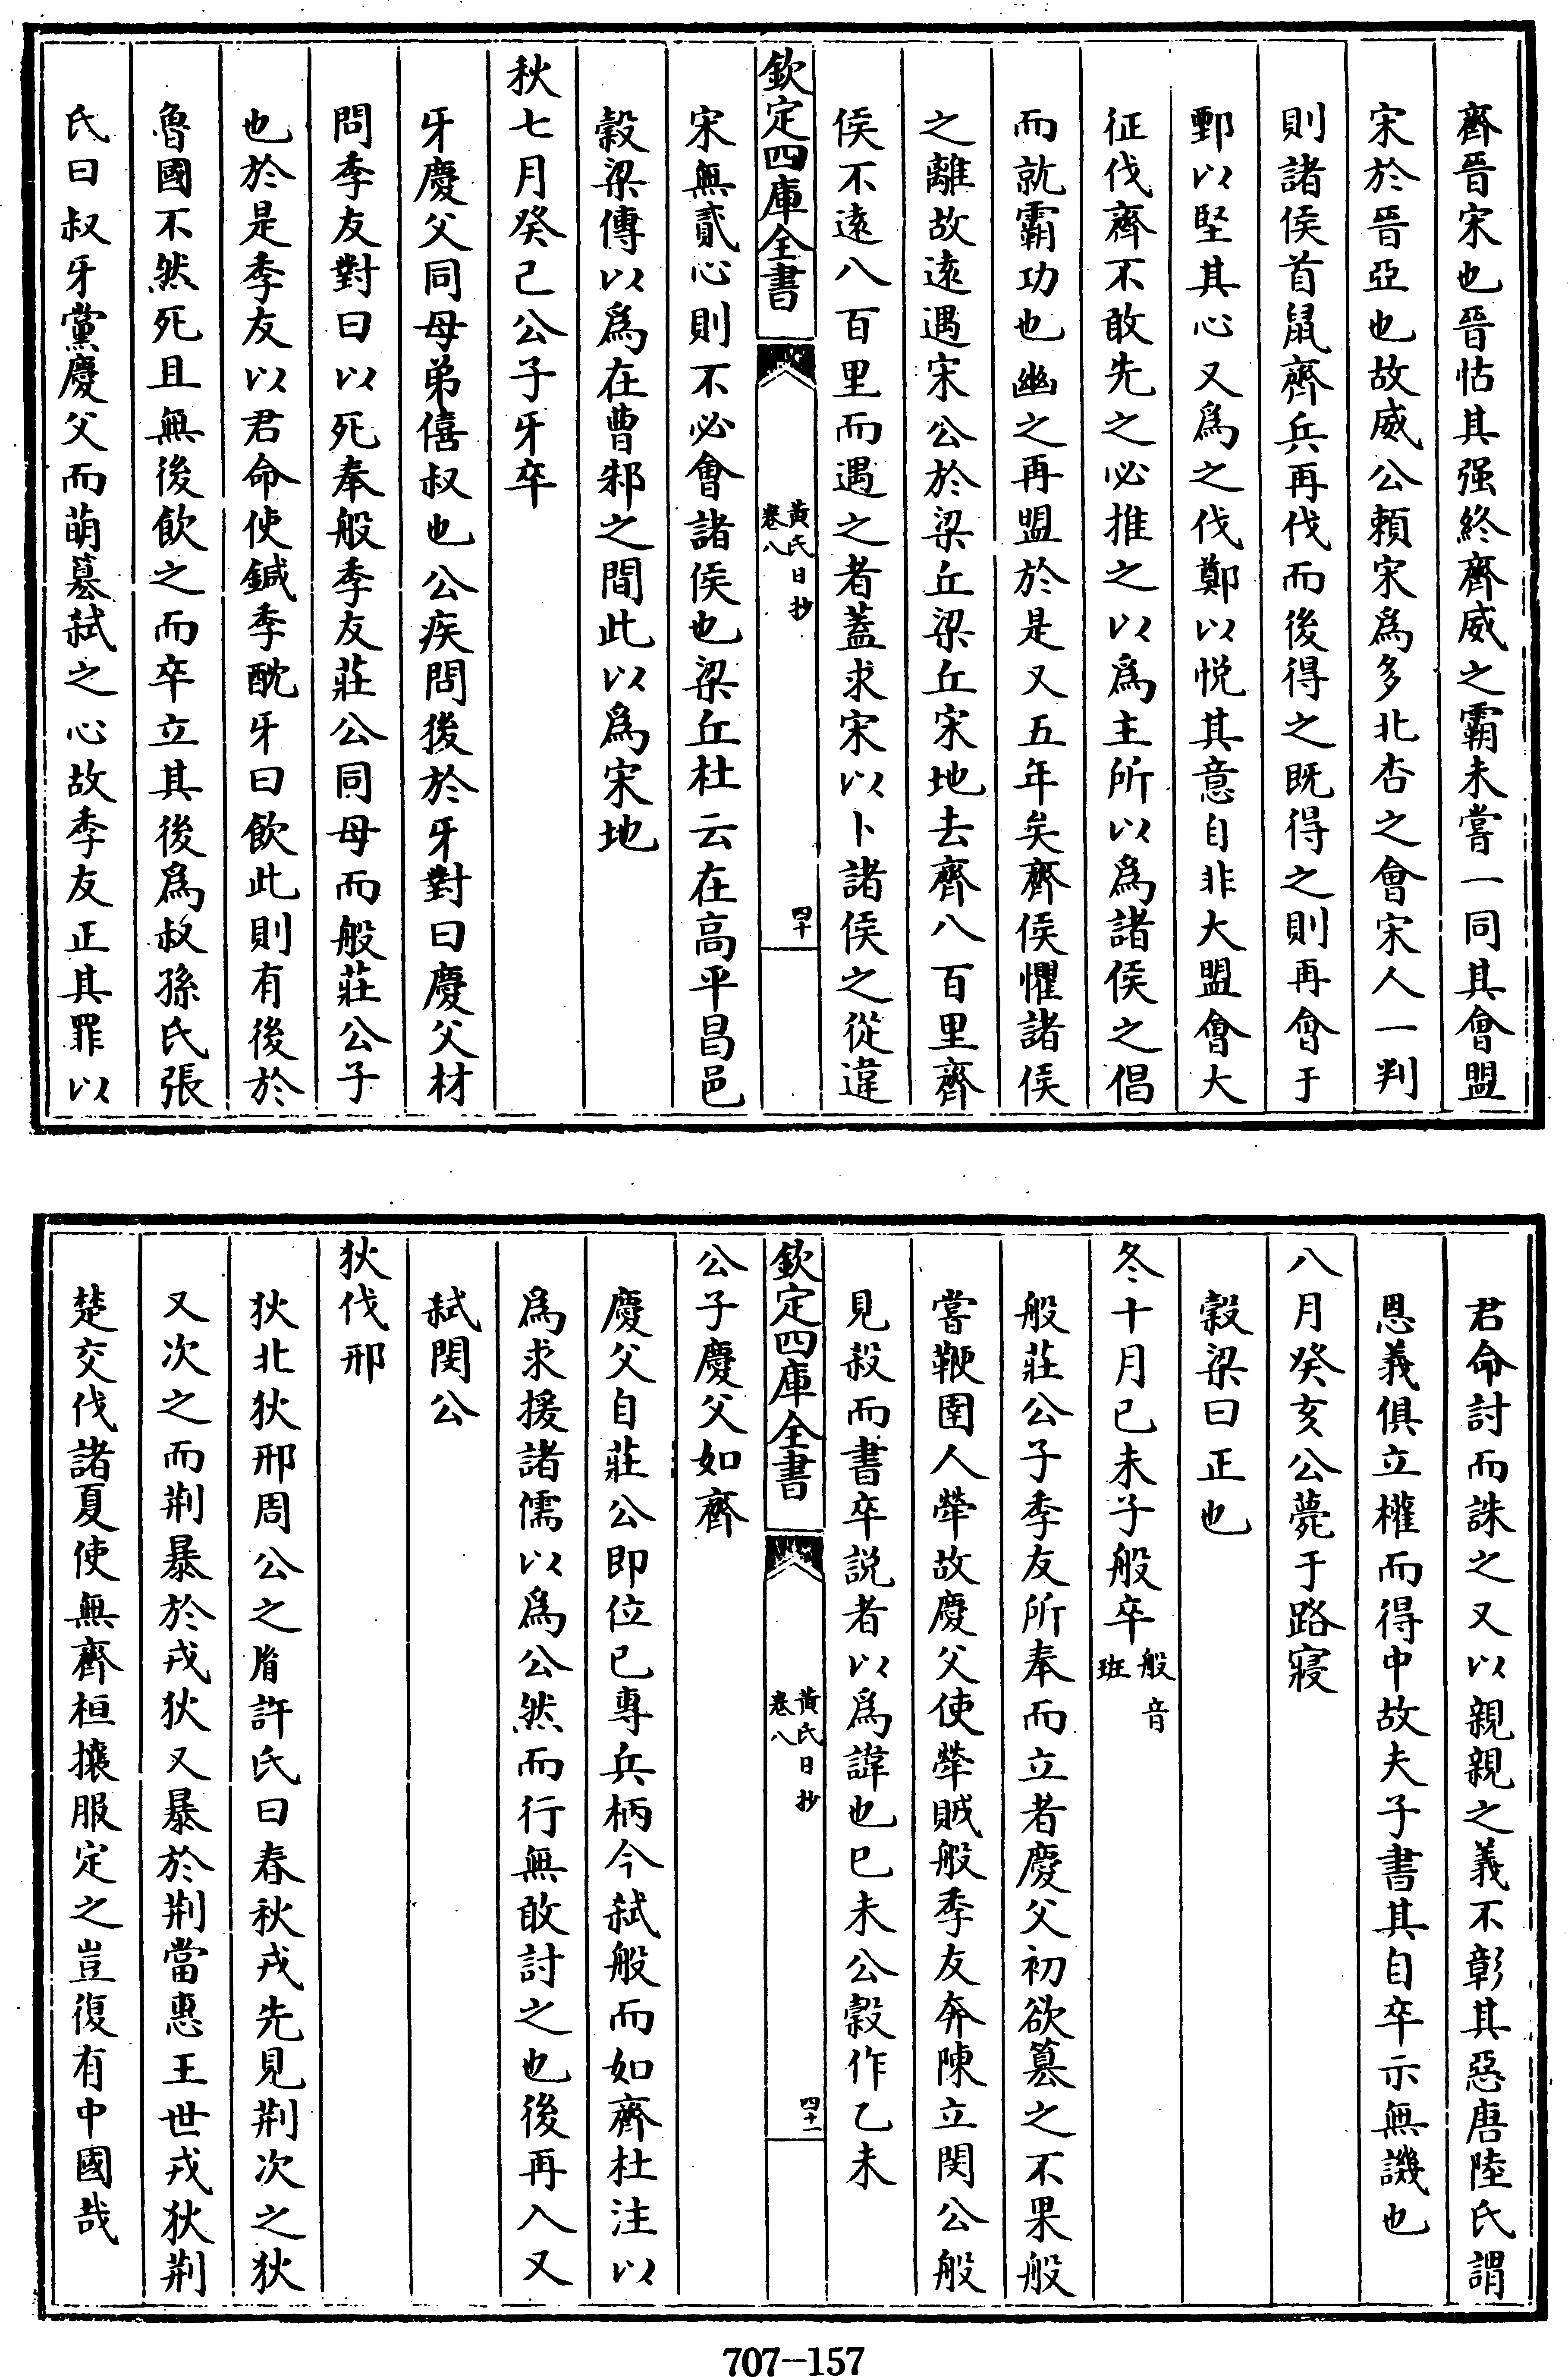 齊晉宋也晉怙其强終齊威之霸未嘗一同其會盟
宋於晉亞也故威公頼宋為多北杏之會宋人一判
則諸侯首鼠齊兵再伐而後得之既得之則再會于
鄄以堅其心又為之伐鄭以悦其意自非大盟會大
征伐齊不敢先之必推之以為主所以為諸侯之倡
而就霸功也幽之再盟於是又五年矣齊侯懼諸侯
之離故逺遇宋公於梁丘梁丘宋地去齊八百里齊
侯不逺八百里而遇之者蓋求宋以卜諸侯之從違
欽定四庫全書
黄氏日抄
卷八
四十
宋無貳心則不必會諸侯也梁丘杜云在高平昌邑
穀梁傳以為在曹邾之間此以為宋地
秋七月癸已公子牙卒
牙慶父同母弟僖叔也公疾問後於牙對曰慶父材
問季友對曰以死奉般季友莊公同母而般莊公子
也於是季友以君命使鍼季酖牙曰飲此則有後於
魯國不然死且無後飲之而卒立其後為叔孫氏張
氏曰叔牙黨慶父而萌簒弑之心故季友正其罪以
君命討而誅之又以親親之義不彰其惡唐陸氏謂
恩義俱立權而得中故夫子書其自卒示無譏也
八月癸亥公薨于路寢
穀梁曰正也
冬十月已未子般卒般音
班
般莊公子季友所奉而立者慶父初欲簒之不果般
嘗鞭圉人犖故慶父使犖賊般季友奔陳立閔公般
見殺而書卒説者以為諱也已未公穀作乙未
欽定四庫全書
黄氏日抄
卷八
四十一
公子慶父如齊
慶父自莊公即位已專兵柄今弑般而如齊杜注以
為求援諸儒以為公然而行無敢討之也後再入又
弑閔公
狄伐邢
狄北狄邢周公之胤許氏曰春秋戎先見荆次之狄
又次之而荆暴於戎狄又暴於荆當惠王世戎狄荆
楚交伐諸夏使無齊桓攘服定之豈復有中國哉
707-157